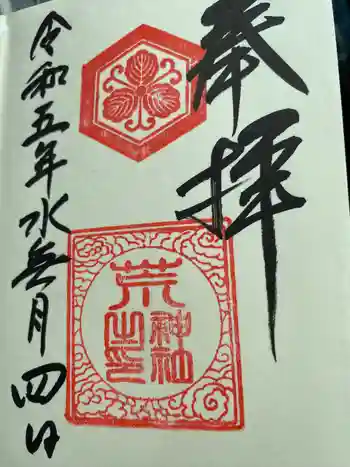 奉拝
荒
神社
之印
令和五年水無月四日